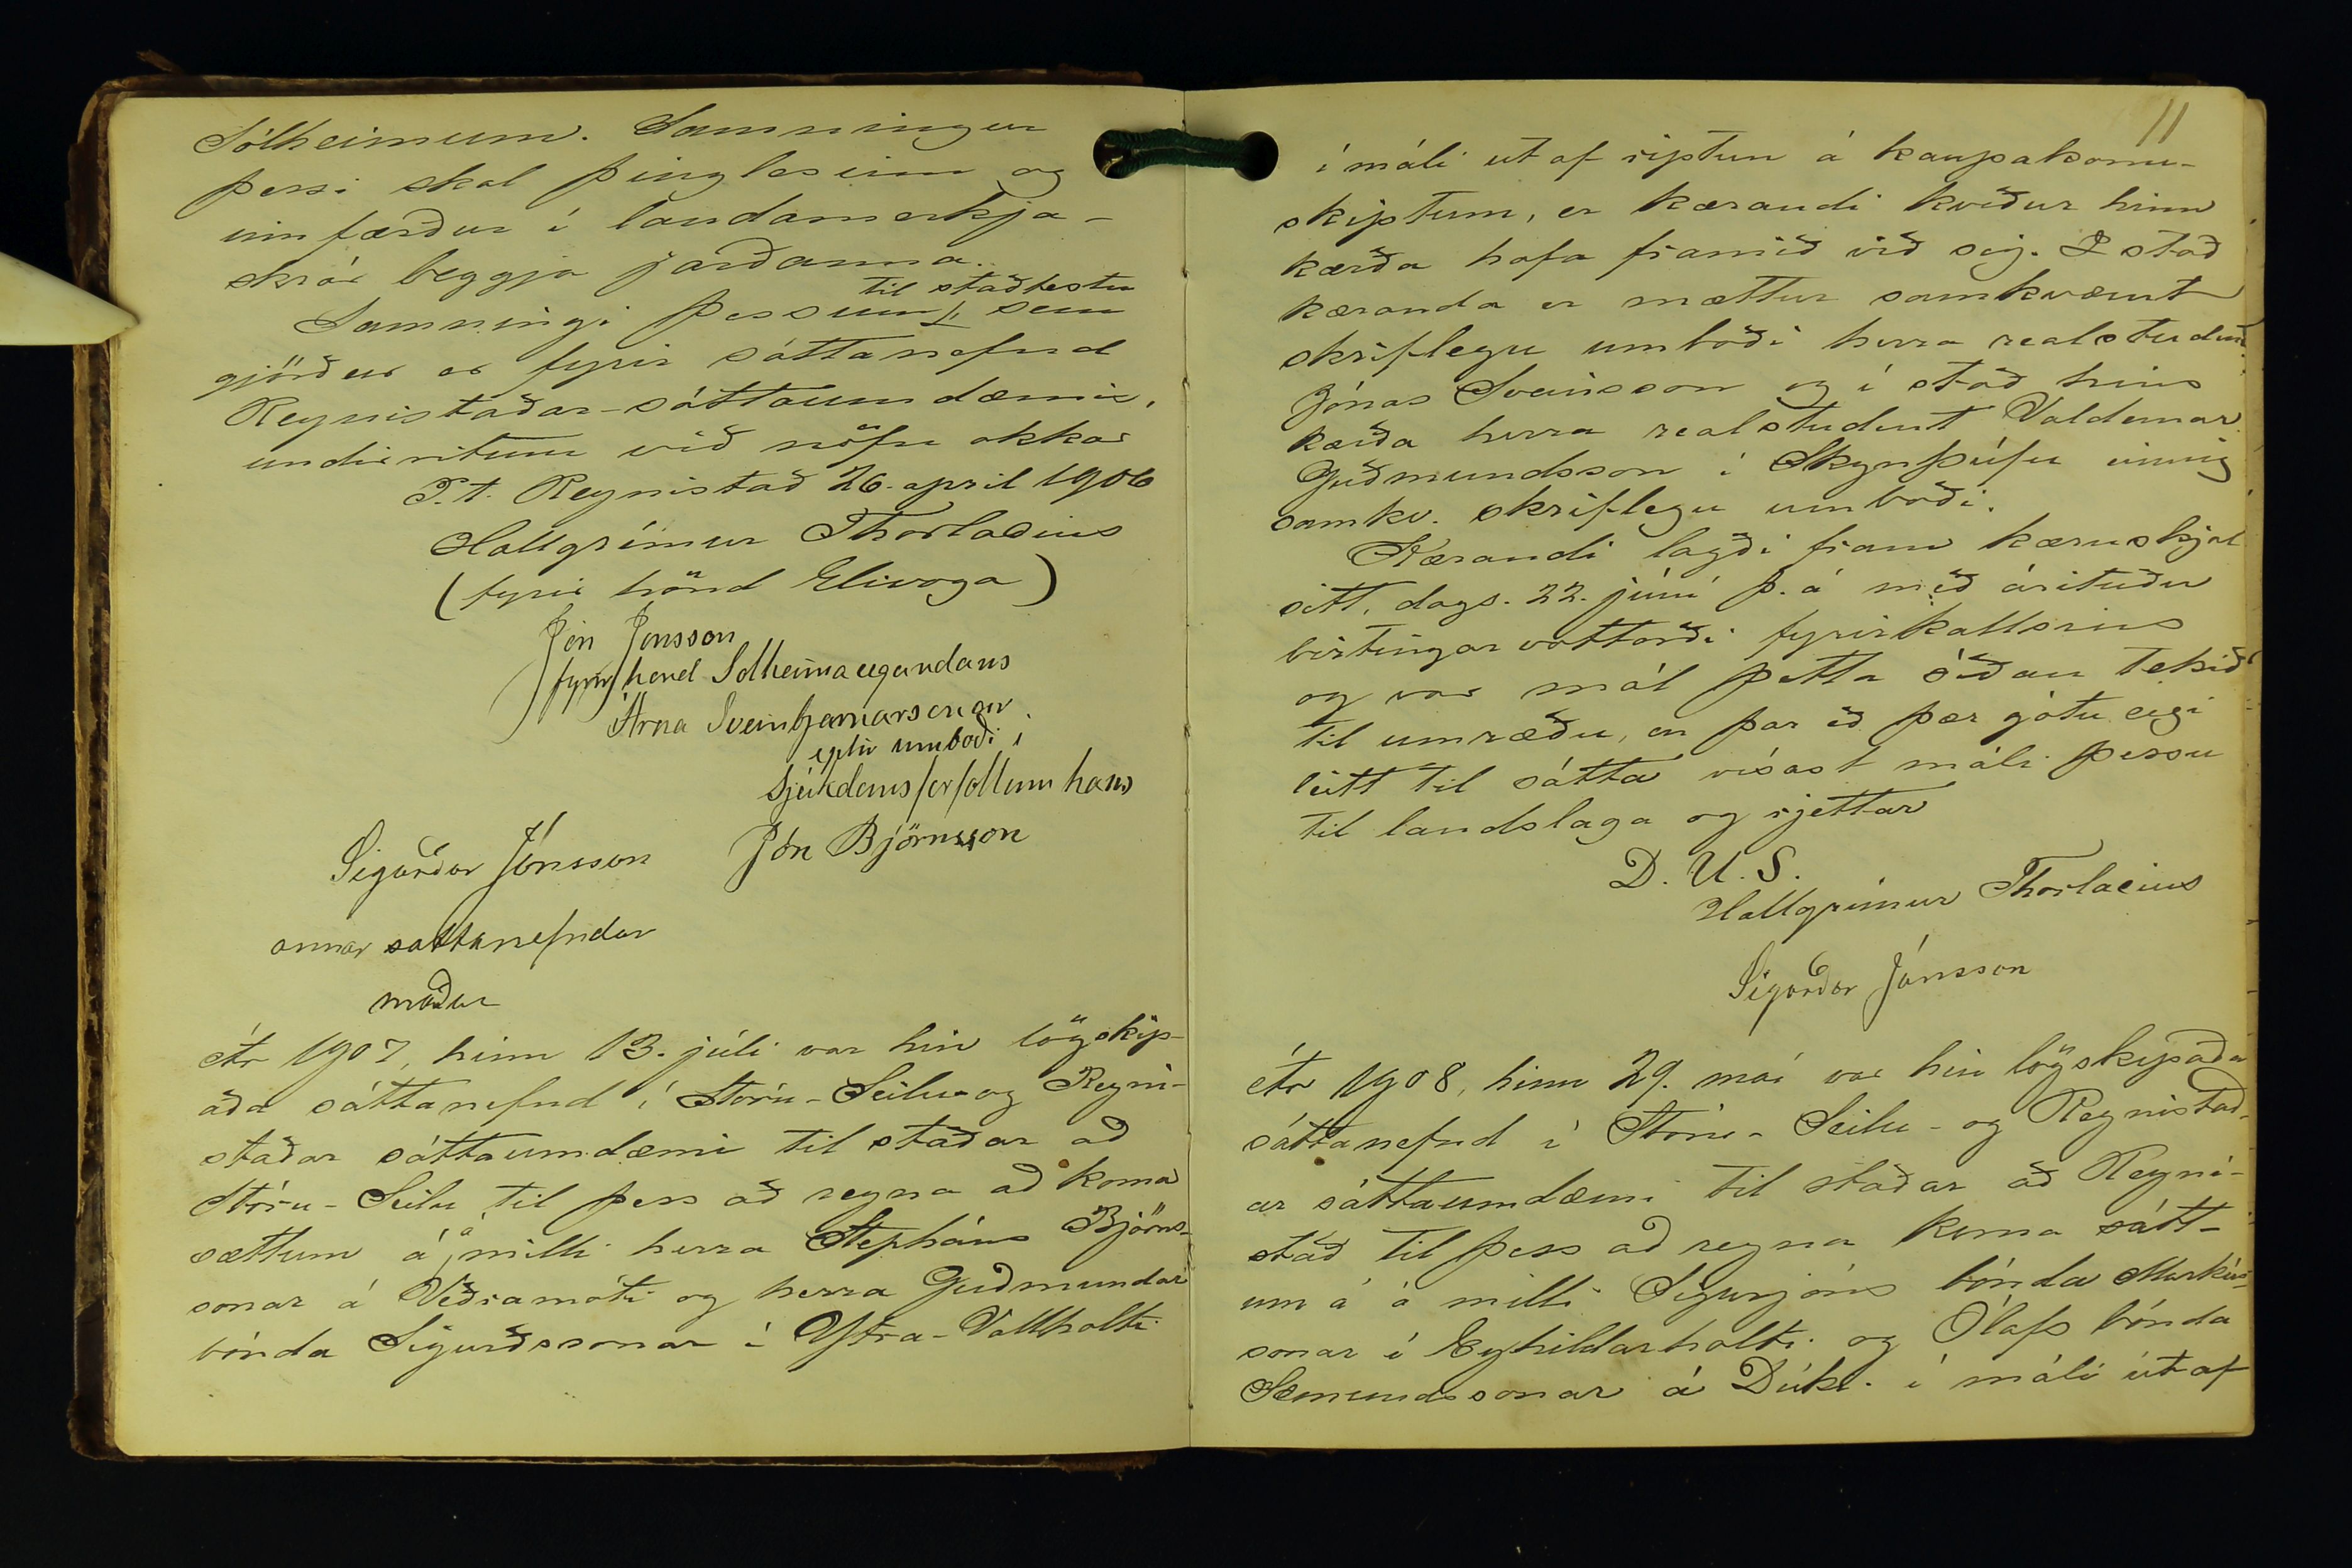 Sólheimum. Samningur
þessi skal þinglesinn og
innfærður í landamerkja-
skrár beggja jarðanna.
til staðfestu
Samningi þessum, sem
gjörður er fyrir sáttanefnd
Reynistaðar-sáttaumdæmis,
undirritum við nöfn okkar
P.t. Reynistað 26. april 1906
Hallgrímur Thorlacius
(fyrir hönd Elivoga)
Jón Jónsson
fyrir hönd Solheimaeigandans
Árna Sveinbjarnarsonar
eptir umboði í
sjúkdomsforföllum hans
Sigurður Jónsson Jón Björnsson
annar sattanefndar
maður
Ár 1907, hinn 13. júli var hin lögskip-
aða sáttanefnd í Stóru-Seilu- og Reyni-
staðar sáttaumdæmi til staðar að
Stóru-Seilu til þess að reyna að koma
sættum á á milli herra Stepháns Björns-
sonar á Veðramóti og herra Guðmundar
bónda Sigurðssonar í Ytra-Vallholti
11
í máli út af riptun á kaupakonu-
skiptum, er kærandi kveður hinn
kærða hafa framið við sig. Í stað
kæranda er mættur samkvæmt
skriflegu umboði herra realstudent
Jónas Sveinsson og í stað hins
kærða herra realstudent Valdemar
Guðmundsson í Skynþúfu einnig
samkv. skriflegu umboði.
Kærandi lagði fram kæruskjal
sitt, dags. 22. júní þ. á með árituðu
birtingarvottorði fyrirkallsins
og var mál þetta síðan tekið
til umræðu, en þar eð þær gátu eigi
leitt til sátta vísast máli þessu
til landslaga og rjettar
D. U. S.
Hallgrímur Thorlacius
Sigurður Jónsson
Ár 1908, hinn 29. maí var hin lögskipaða
sáttanefnd í Stóru-Seilu- og Reynistað-
ar sáttaumdæmi til staðar að Reyni-
stað til þess að reyna koma sátt-
um á á milli Sigurjóns bónda Markús-
sonar í Eyhildarholti og Ólafs bónda
Sæmundssonar á Dúki í máli út af